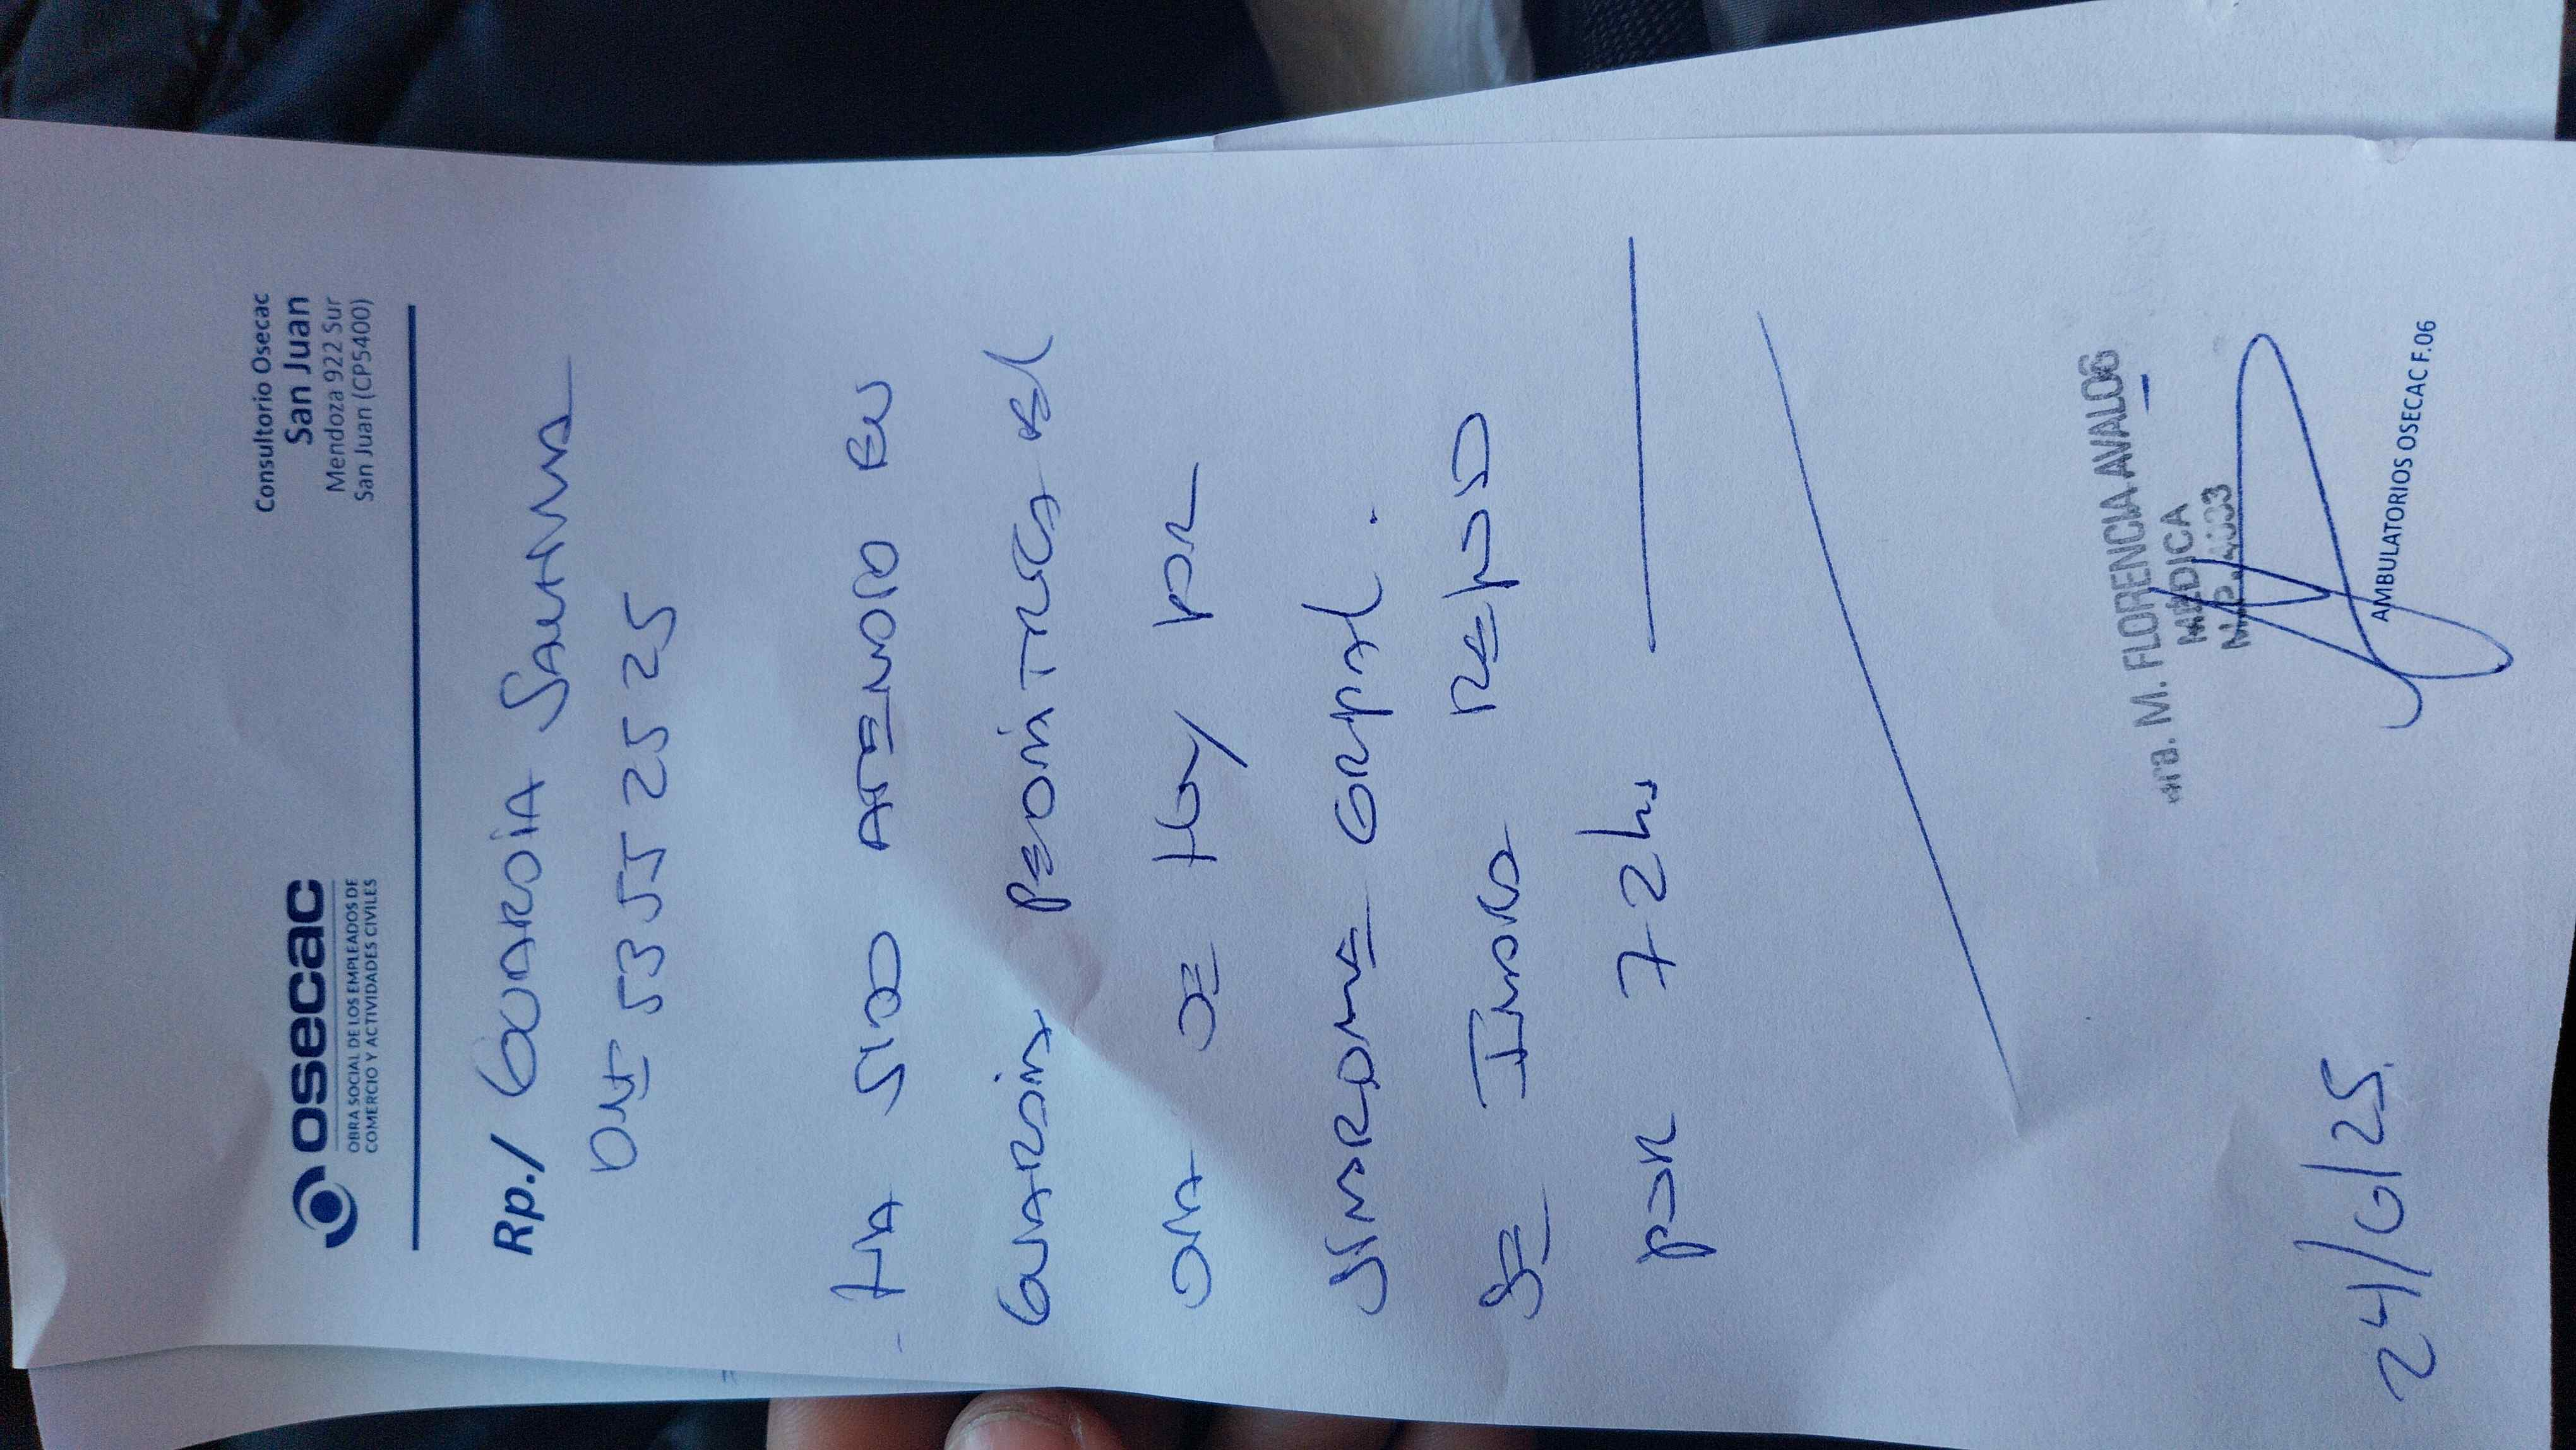 osecac
OBRA SOCIAL DE LOS EMPLEADOS DE
COMERCIO Y ACTIVIDADES CIVILES
Consultorio Osecac
San Juan
Mendoza 922 Sur
San Juan (CP5400)
Rp./ GUARDIA
53552525
HA SIDO ATENDIDO EN
GUARDIA PEDIATRICA EL
DIA DE HOY POR
SINDROME GRIPAL.
SE INDICA REPOSO
POR 72hs
Dra. M. FLORENCIA AVALOS
MEDICA
M.P.
24/6/25
AMBULATORIOS OSECAC F.06